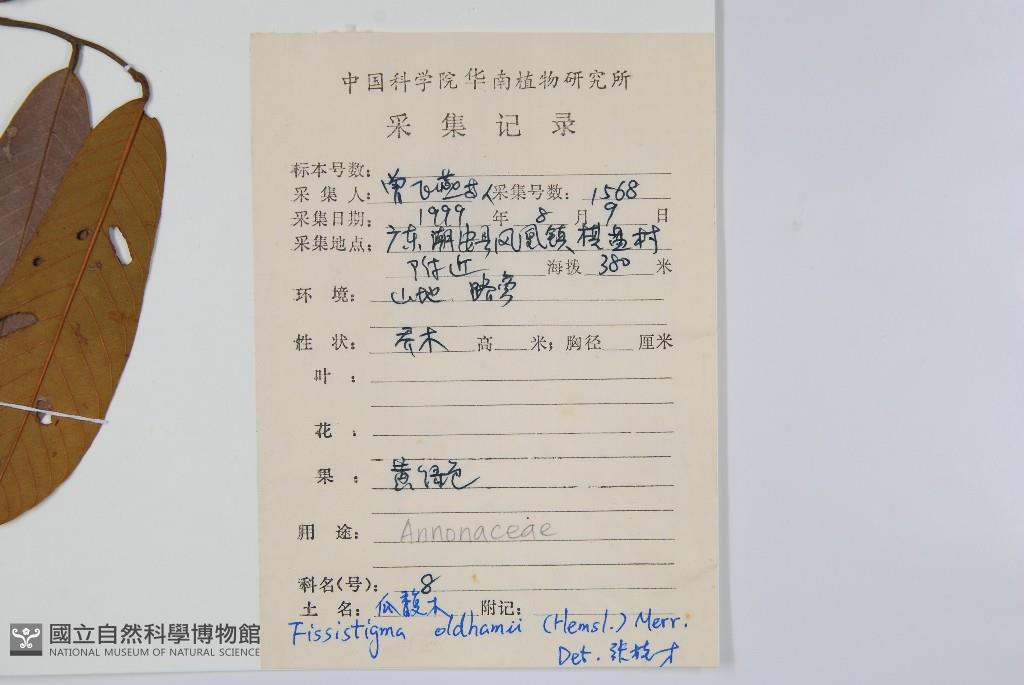 中国科学院华南植物研究所
采集记录
标本号数：
采集人：曾飞燕 采集号数：1568
采集日期：1999年8月9日
采集地点：广东潮安县凤凰镇棋盘村
附近 海拨 380 米
环境：山地 路旁
性状：乔木 高 米；胸径 厘米
叶：
花：
果：黄绿色
用途：Annonaceae
科名(号)：8
土名：瓜馥木 附记：
Fissistigma oldhamii (Hemsl.) Merr.
Det. 张
國立自然科學博物館
NATIONAL MUSEUM OF NATURAL SCIENCE